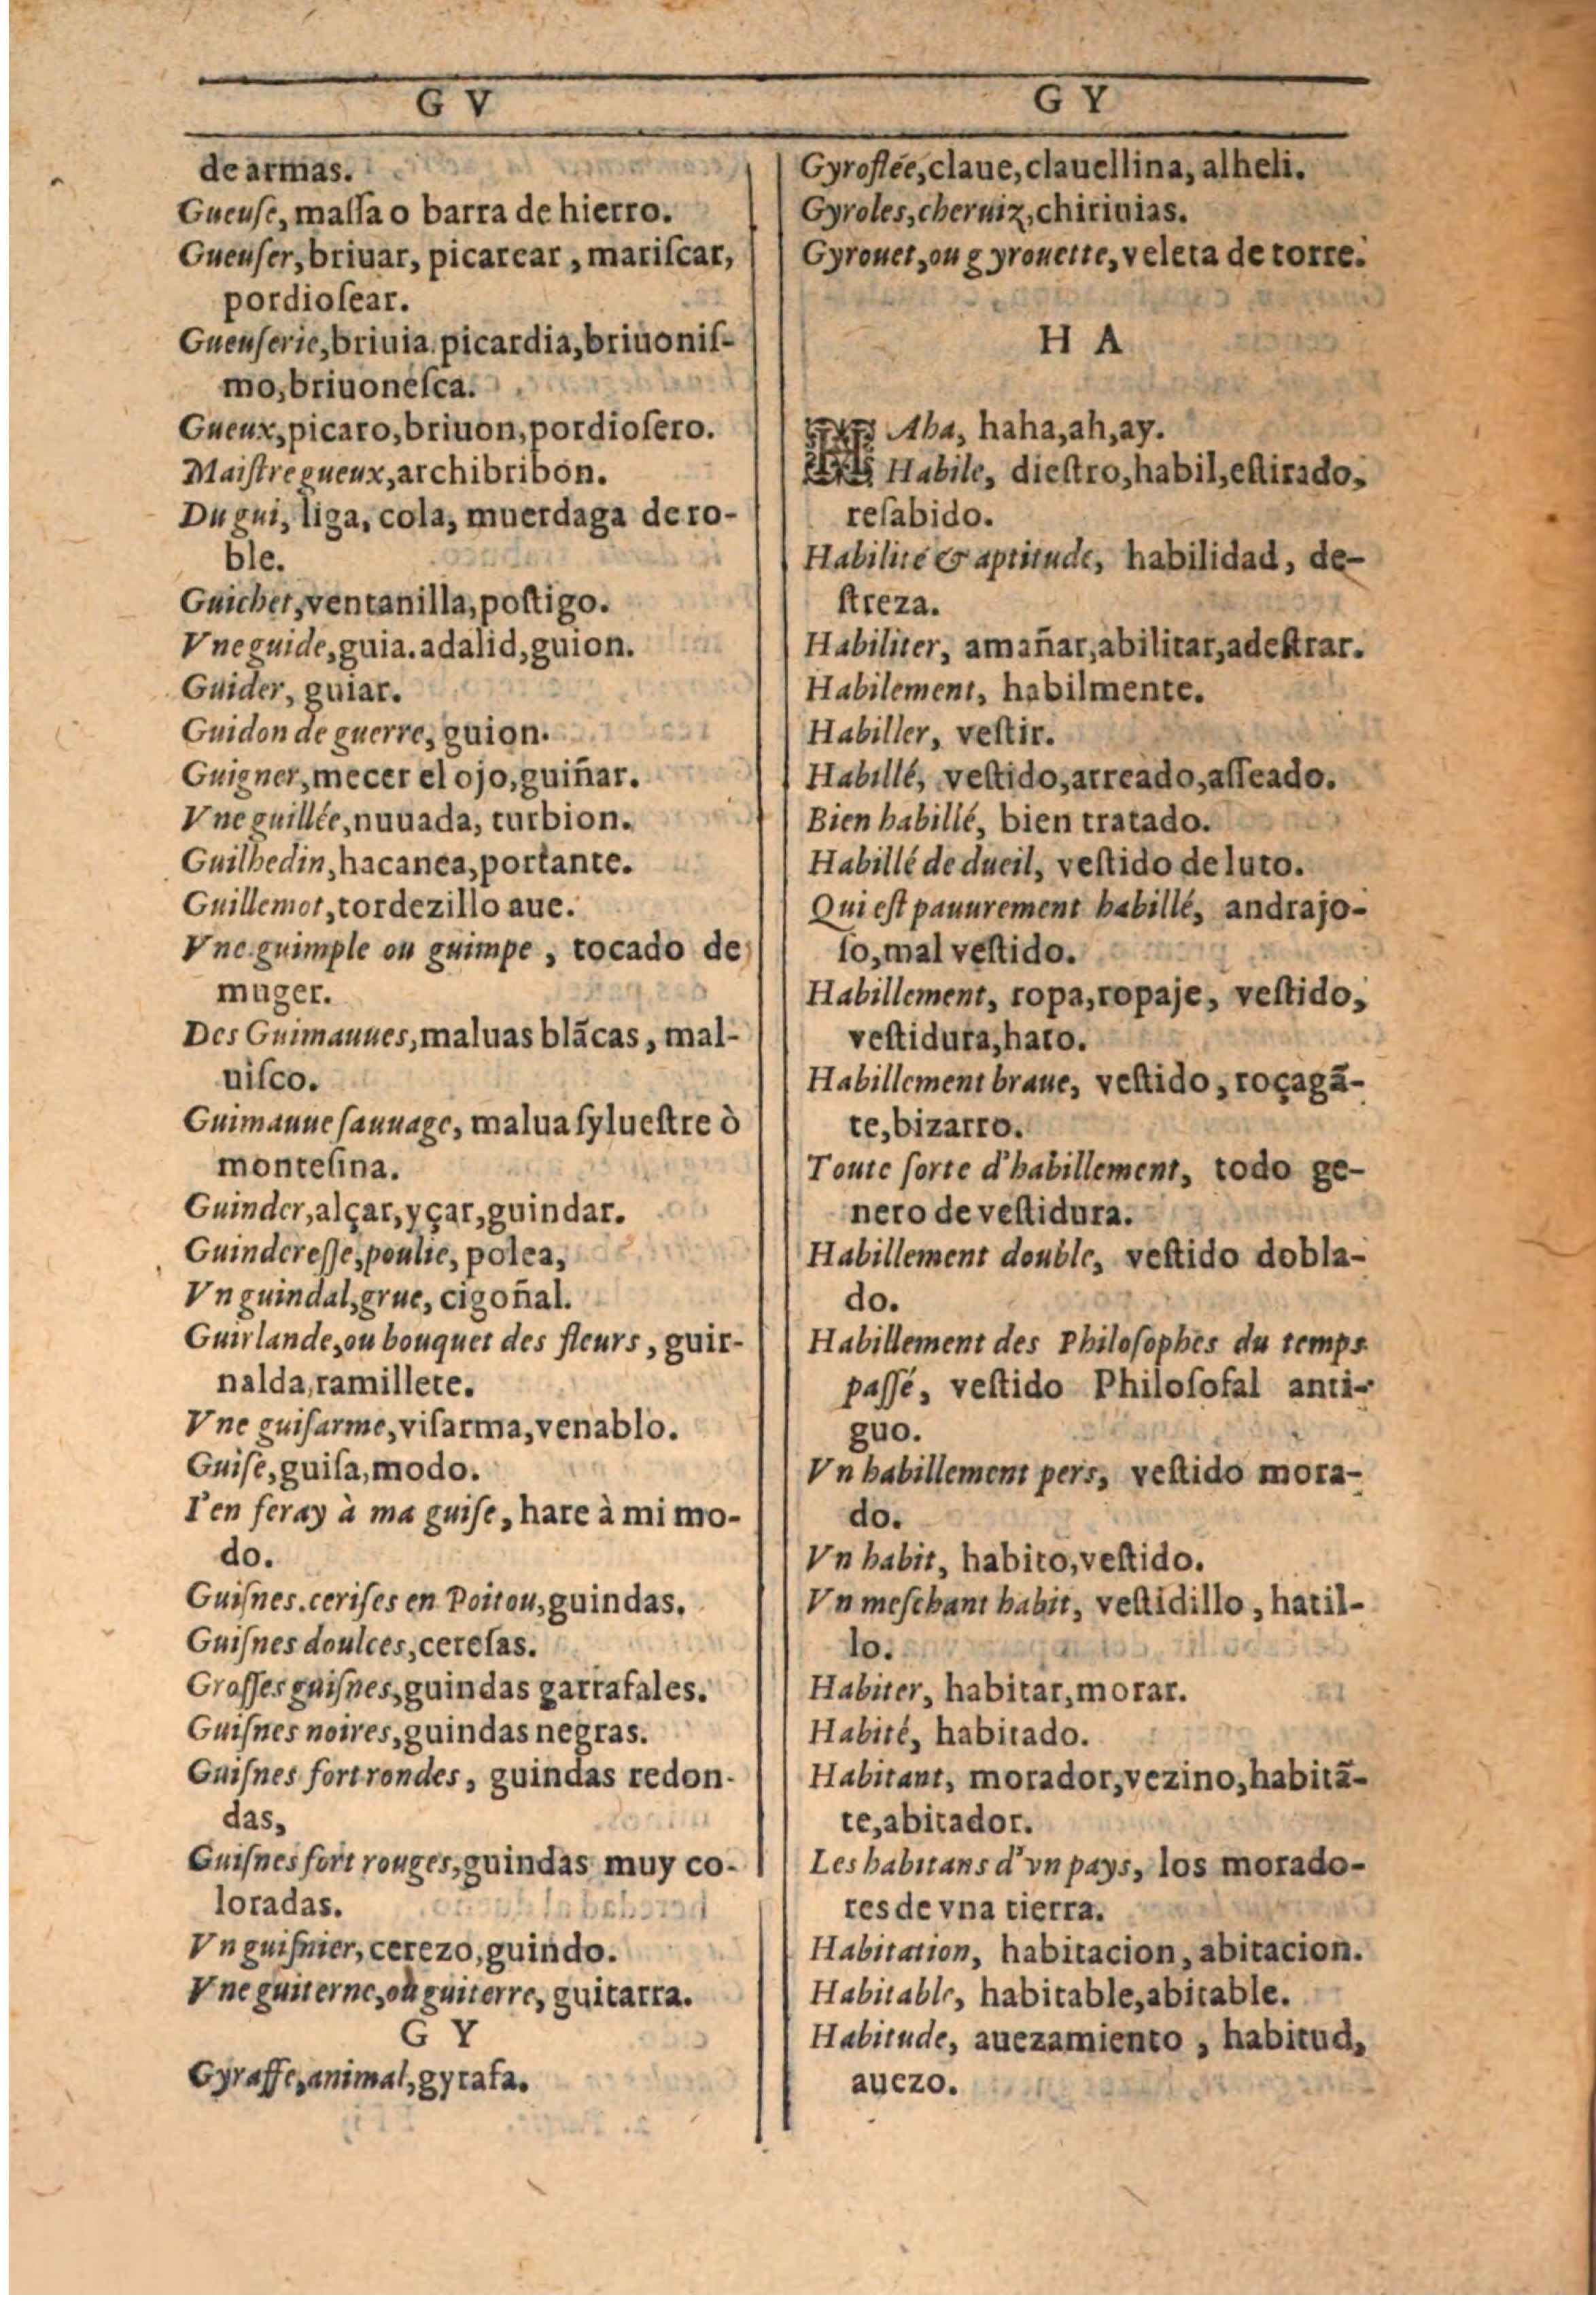 G V
de armas.
Gueuſe, maſſa o barra de hierro.
Gueuſer, briuar, picarear, mariſcar,
pordioſear.
Gueuſerie, briuia. picardia, briuoniſ-
mo, briuoneſca.
Gueux, picaro, briuon, pordioſero.
Maiſtre gueux, archibribon.
Du gui, liga, cola, muerdaga de ro-
ble.
Guichet, ventanilla, poſtigo.
Vne guide, guia. adalid, guion.
Guider, guiar.
Guidon de guerre, guion.
Guigner, mecer el ojo, guiñar.
Vne guillée, nuuada, turbion.
Guilhedin, hacanea, portante.
Guillemot, tordezillo aue.
Vne guimple ou guimpe, tocado de
muger.
Des Guimauues, maluas blãcas, mal-
uiſco.
Guimauue ſauuage, malua ſylueſtre ò
monteſina.
Guinder, alçar, yçar, guindar.
Guindereſſe, poulie, polea,
Vn guindal, grue, cigoñal.
Guirlande, ou bouquet des fleurs, guir-
nalda, ramillete.
Vne guiſarme, viſarma, venablo.
Guiſe, guiſa, modo.
I'en feray à ma guiſe, hare à mi mo-
do.
Guiſnes. ceriſes en Poitou, guindas.
Guiſnes doulces, cereſas.
Groſſes guiſnes, guindas garrafales.
Guiſnes noires, guindas negras.
Guiſnes fort rondes, guindas redon-
das,
Guiſnes fort rouges, guindas muy co-
loradas.
Vn guiſnier, cerezo, guindo.
Vne guiterne, où guiterre, guitarra.
G Y
Gyraffe, animal, gyrafa.
G Y
Gyroflée, claue, clauellina, alheli.
Gyroles, cheruiz, chiriuias.
Gyrouet, ou gyrouette, veleta de torre.
H A
HAha, haha, ah, ay.
Habile, dieſtro, habil, eſtirado,
reſabido.
Habilité & aptitude, habilidad, de-
ſtreza.
Habiliter, amañar, abilitar, adeſtrar.
Habilement, habilmente.
Habiller, veſtir.
Habillé, veſtido, arreado, aſſeado.
Bien habillé, bien tratado.
Habillé de dueil, veſtido de luto.
Qui eſt pauurement habillé, andrajo-
ſo, mal veſtido.
Habillement, ropa, ropaje, veſtido,
veſtidura, hato.
Habillement braue, veſtido, roçagã-
te, bizarro.
Toute ſorte d'habillement, todo ge-
nero de veſtidura.
Habillement double, veſtido dobla-
do.
Habillement des Philoſophes du temps
paſſé, veſtido Philoſofal anti-
guo.
Vn habillement pers, veſtido mora-
do.
Vn habit, habito, veſtido.
Vn meſchant habit, veſtidillo, hatil-
lo.
Habiter, habitar, morar.
Habité, habitado.
Habitant, morador, vezino, habitã-
te, abitador.
Les habitans d'vn pays, los morado-
res de vna tierra.
Habitation, habitacion, abitacion.
Habitable, habitable, abitable.
Habitude, auezamiento, habitud,
auezo.